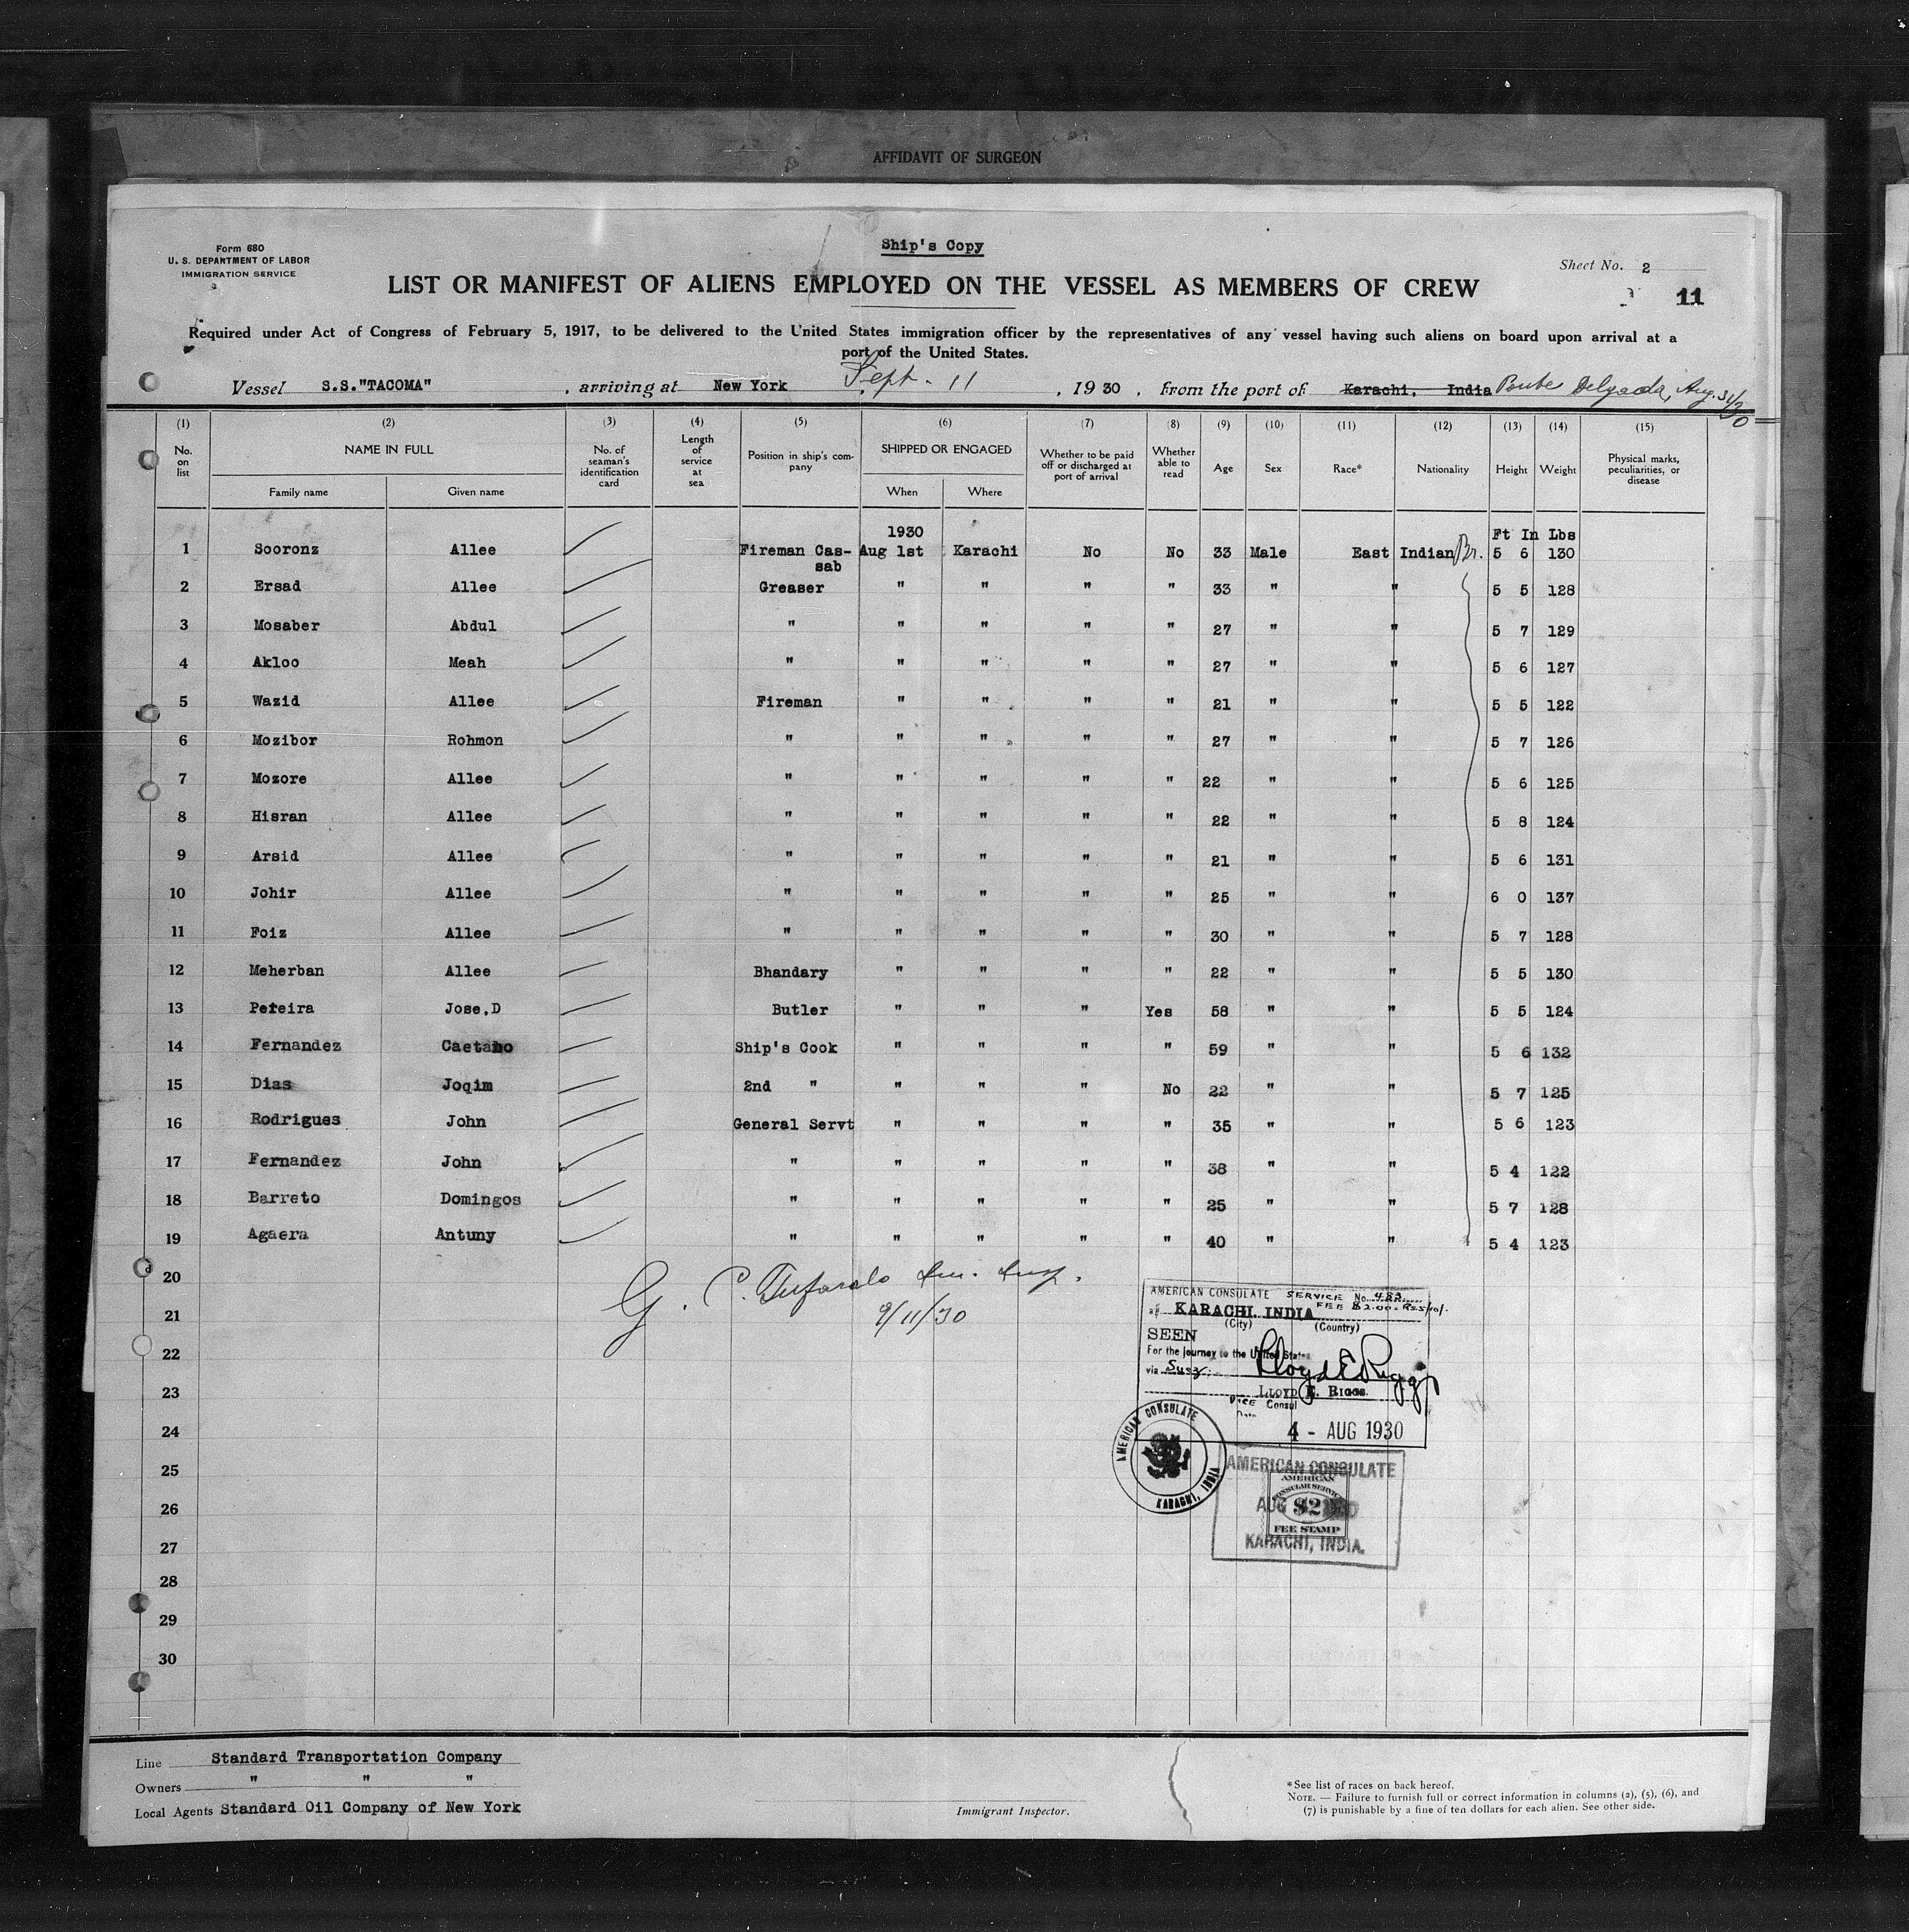 AFFIDAVIT OF SURGEON
Form 680
U. S. DEPARTMENT OF LABOR
IMMIGRATION SERVICE
Ship's Copy
Sheet No. 2
LIST OR MANIFEST OF ALIENS EMPLOYED ON THE VESSEL AS MEMBERS OF CREW
11
Required under Act of Congress of February 5, 1917, to be delivered to the United States immigration officer by the representatives of any vessel having such aliens on board upon arrival at a
port of the United States.
Vessel S.S."TACOMA", arriving at New York Sept. 11, 1930, from the port of Karachi, India Delgada, Aug. 31/30
(1) (2) (3) (4) (5) (6) (7) (8) (9) (10) (11) (12) (13) (14) (15)
No. on list
NAME IN FULL
Family name Given name
No. of seaman's identification card
Length of service at sea
Position in ship's company
SHIPPED OR ENGAGED
When Where
Whether to be paid off or discharged at port of arrival
Whether able to read
Age
Sex
Race*
Nationality
Height
Weight
Physical marks, peculiarities, or disease
1930 Ft In Lbs
1 Sooronz Allee Fireman Cas- Aug 1st Karachi No No 33 Male East Indian Br. 5 6 130
sab
2 Ersad Allee Greaser " " " " 33 " " 5 5 128
3 Mosaber Abdul " " " " " 27 " " 5 7 129
4 Akloo Meah " " " " " 27 " " 5 6 127
5 Wazid Allee Fireman " " " " 21 " " 5 5 122
6 Mozibor Rohmon " " " " " 27 " " 5 7 126
7 Mozore Allee " " " " " 22 " " 5 6 125
8 Hisran Allee " " " " " 22 " " 5 8 124
9 Arsid Allee " " " " " 21 " " 5 6 131
10 Johir Allee " " " " " 25 " " 6 0 137
11 Foiz Allee " " " " " 30 " " 5 7 128
12 Meherban Allee Bhandary " " " " 22 " " 5 5 130
13 Pereira Jose,D Butler " " " Yes 58 " " 5 5 124
14 Fernandez Caetano Ship's Cook " " " " 59 " " 5 6 132
15 Dias Joqim 2nd " " " " No 22 " " 5 7 125
16 Rodrigues John General Servt " " " " 35 " " 5 6 123
17 Fernandez John " " " " " 38 " " 5 4 122
18 Barreto Domingos " " " " " 25 " " 5 7 128
19 Agaera Antuny " " " " " 40 " " 5 4 123
20
21
22
23
24
25
26
27
28
29
30
G. C. Imm. Insp.
9/11/30
AMERICAN CONSULATE SERVICE No. 483
at KARACHI, INDIA FEE $2.00=
(City) (Country)
SEEN
For the journey to the United States
via Suez
Lloyd E Riggs
LLOYD E. RIGGS
VICE Consul
Date
4 - AUG 1930
AMERICAN CONSULATE
KARACHI, INDIA
AMERICAN CONSULATE
AUG 1930
KARACHI, INDIA.
AMERICAN
CONSULAR SERVICE
$2
FEE STAMP
Line Standard Transportation Company
Owners " " "
Local Agents Standard Oil Company of New York
Immigrant Inspector.
*See list of races on back hereof.
NOTE. — Failure to furnish full or correct information in columns (2), (5), (6), and
(7) is punishable by a fine of ten dollars for each alien. See other side.